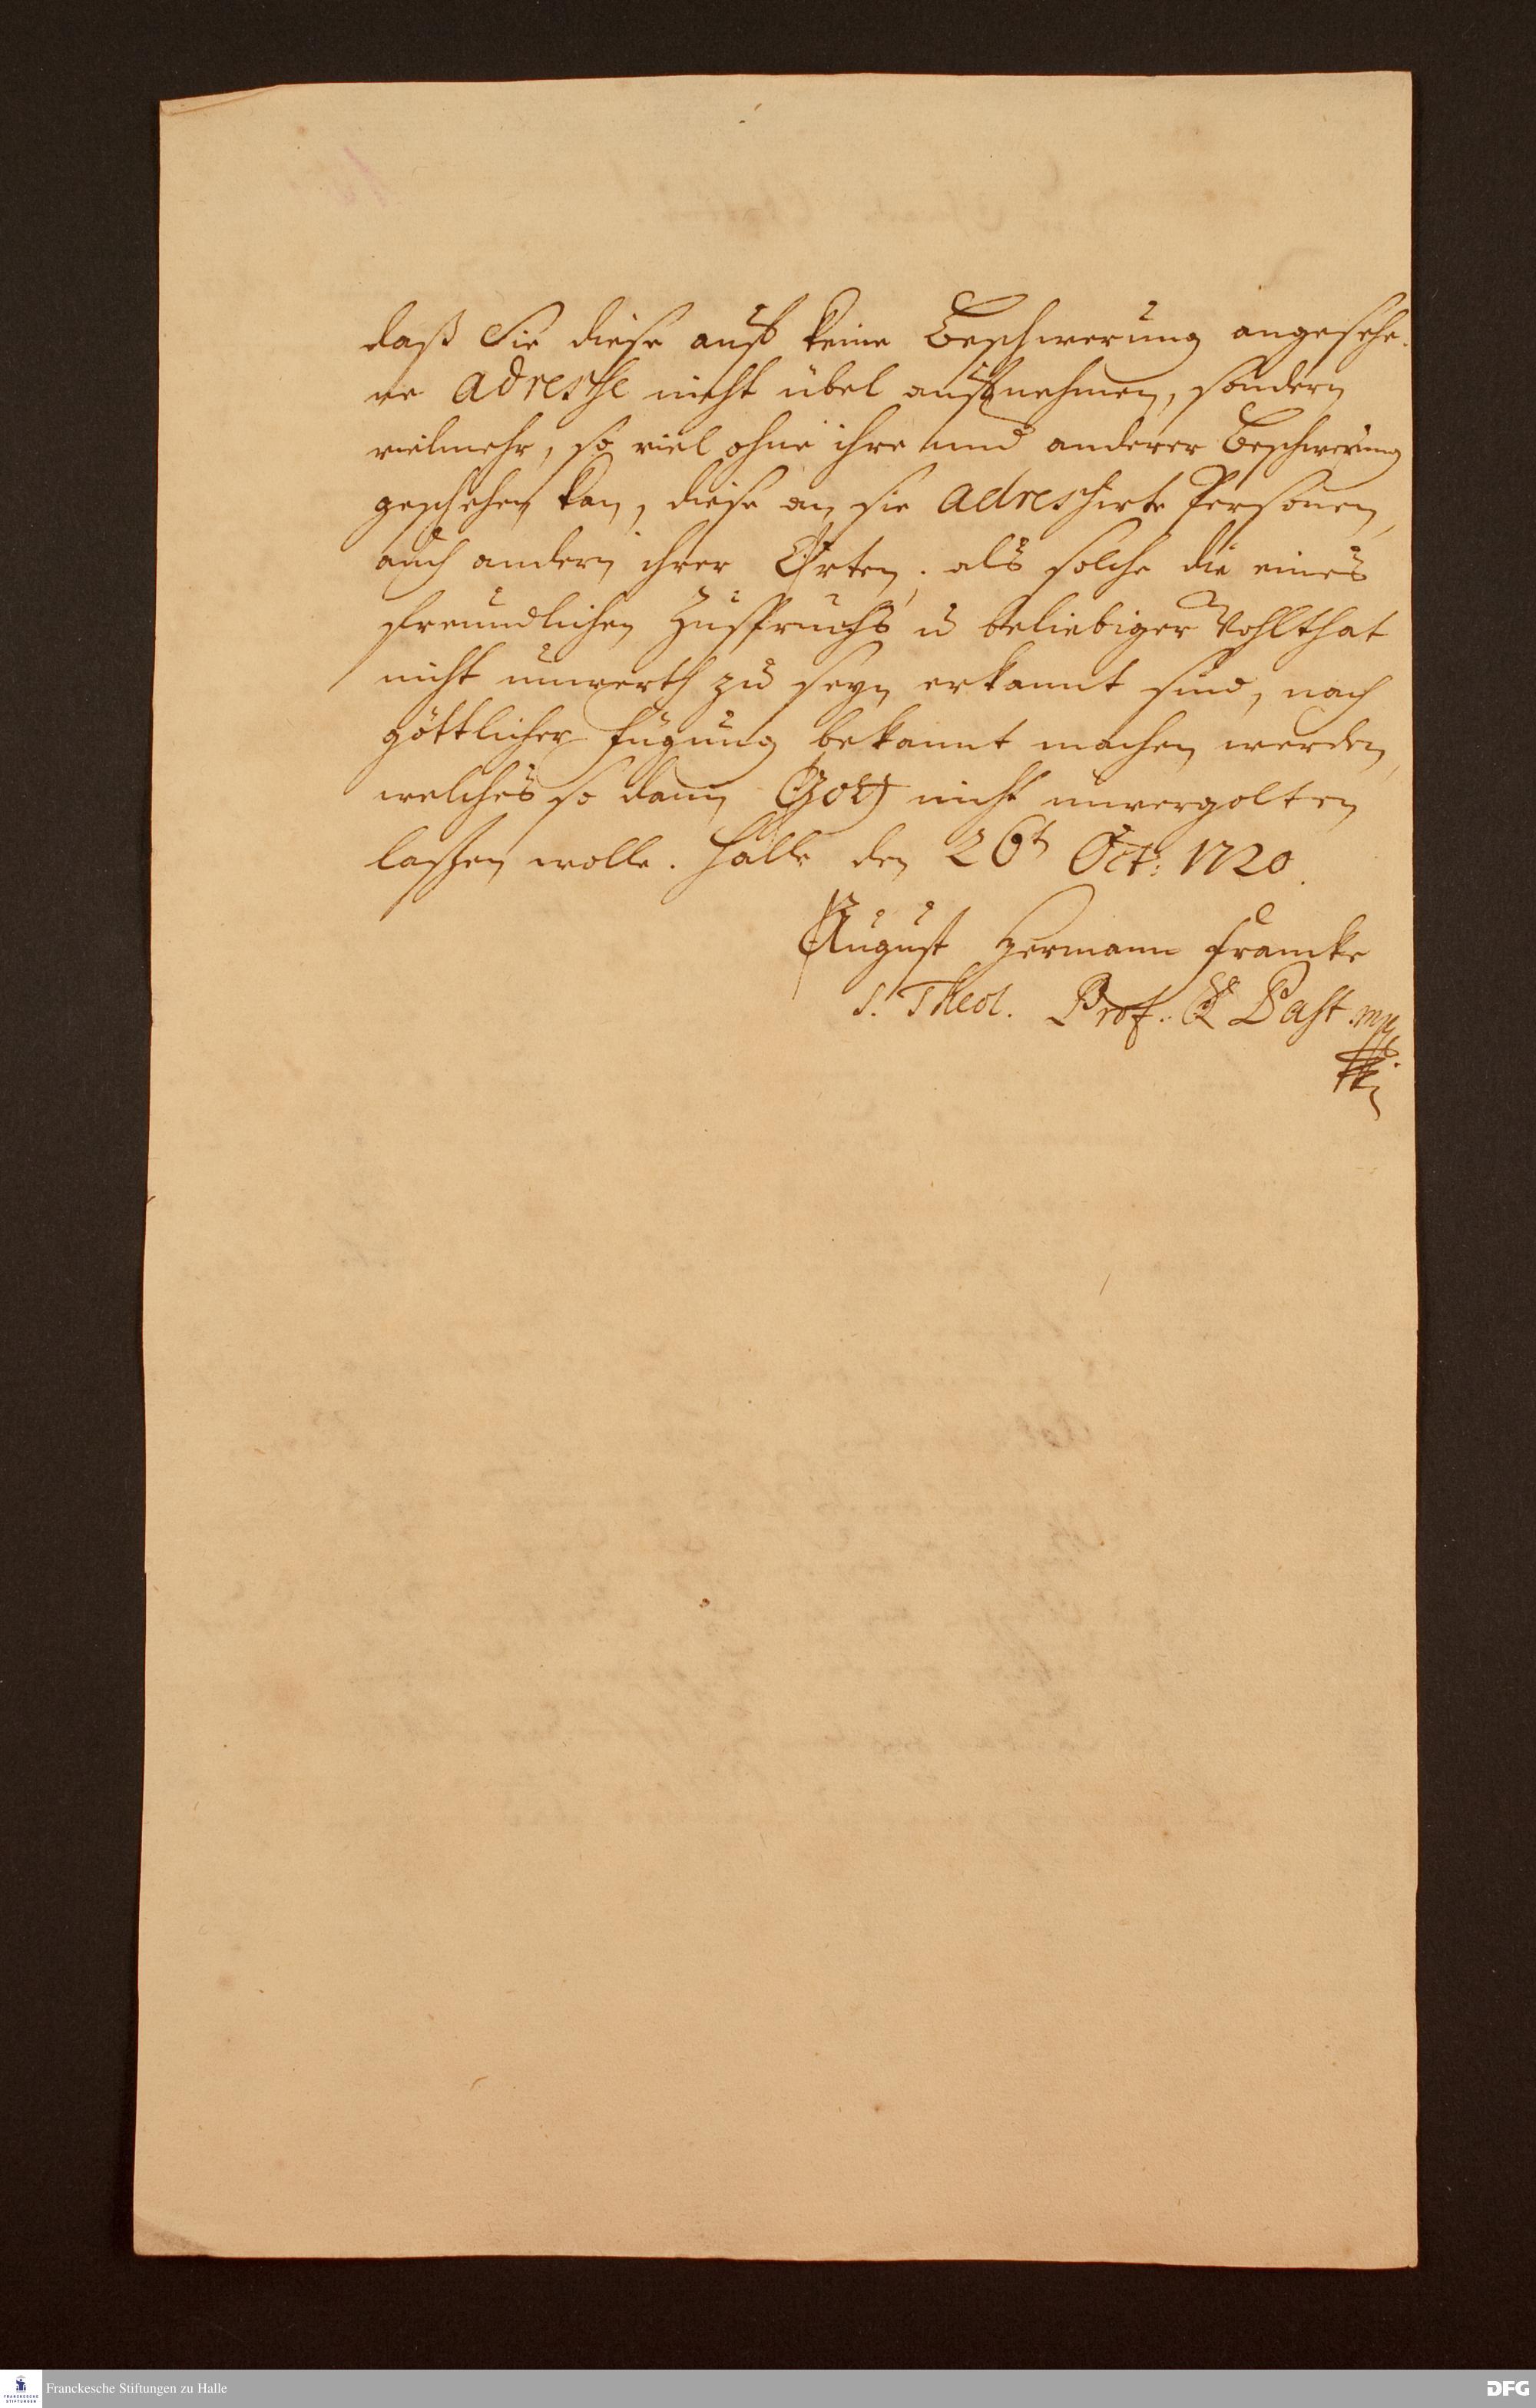 daß Sie diese auff keine Beschwerung angesehe-
ne Adresse nicht übel auffnehmen, sondern
vielmehr, so viel ohne ihre und anderer Beschwerung
geschehen kan, diese an sie adressirte Personen,
auch andern ihrer Orten, als solche die eines
freundlichen Zuspruchs u beliebiger Wohlthat
nicht unwerth zu seyn erkannt sind, nach
göttlicher Fügung bekannt machen werden,
welches so dann Gott nicht unvergolten
lassen wolle. Halle den 26t Oct: 1720.
August Hermann Francke
S. Theol. Prof. & Past.
Franckesche Stiftungen zu Halle
FRANCKESCHE STIFTUNGEN
DFG